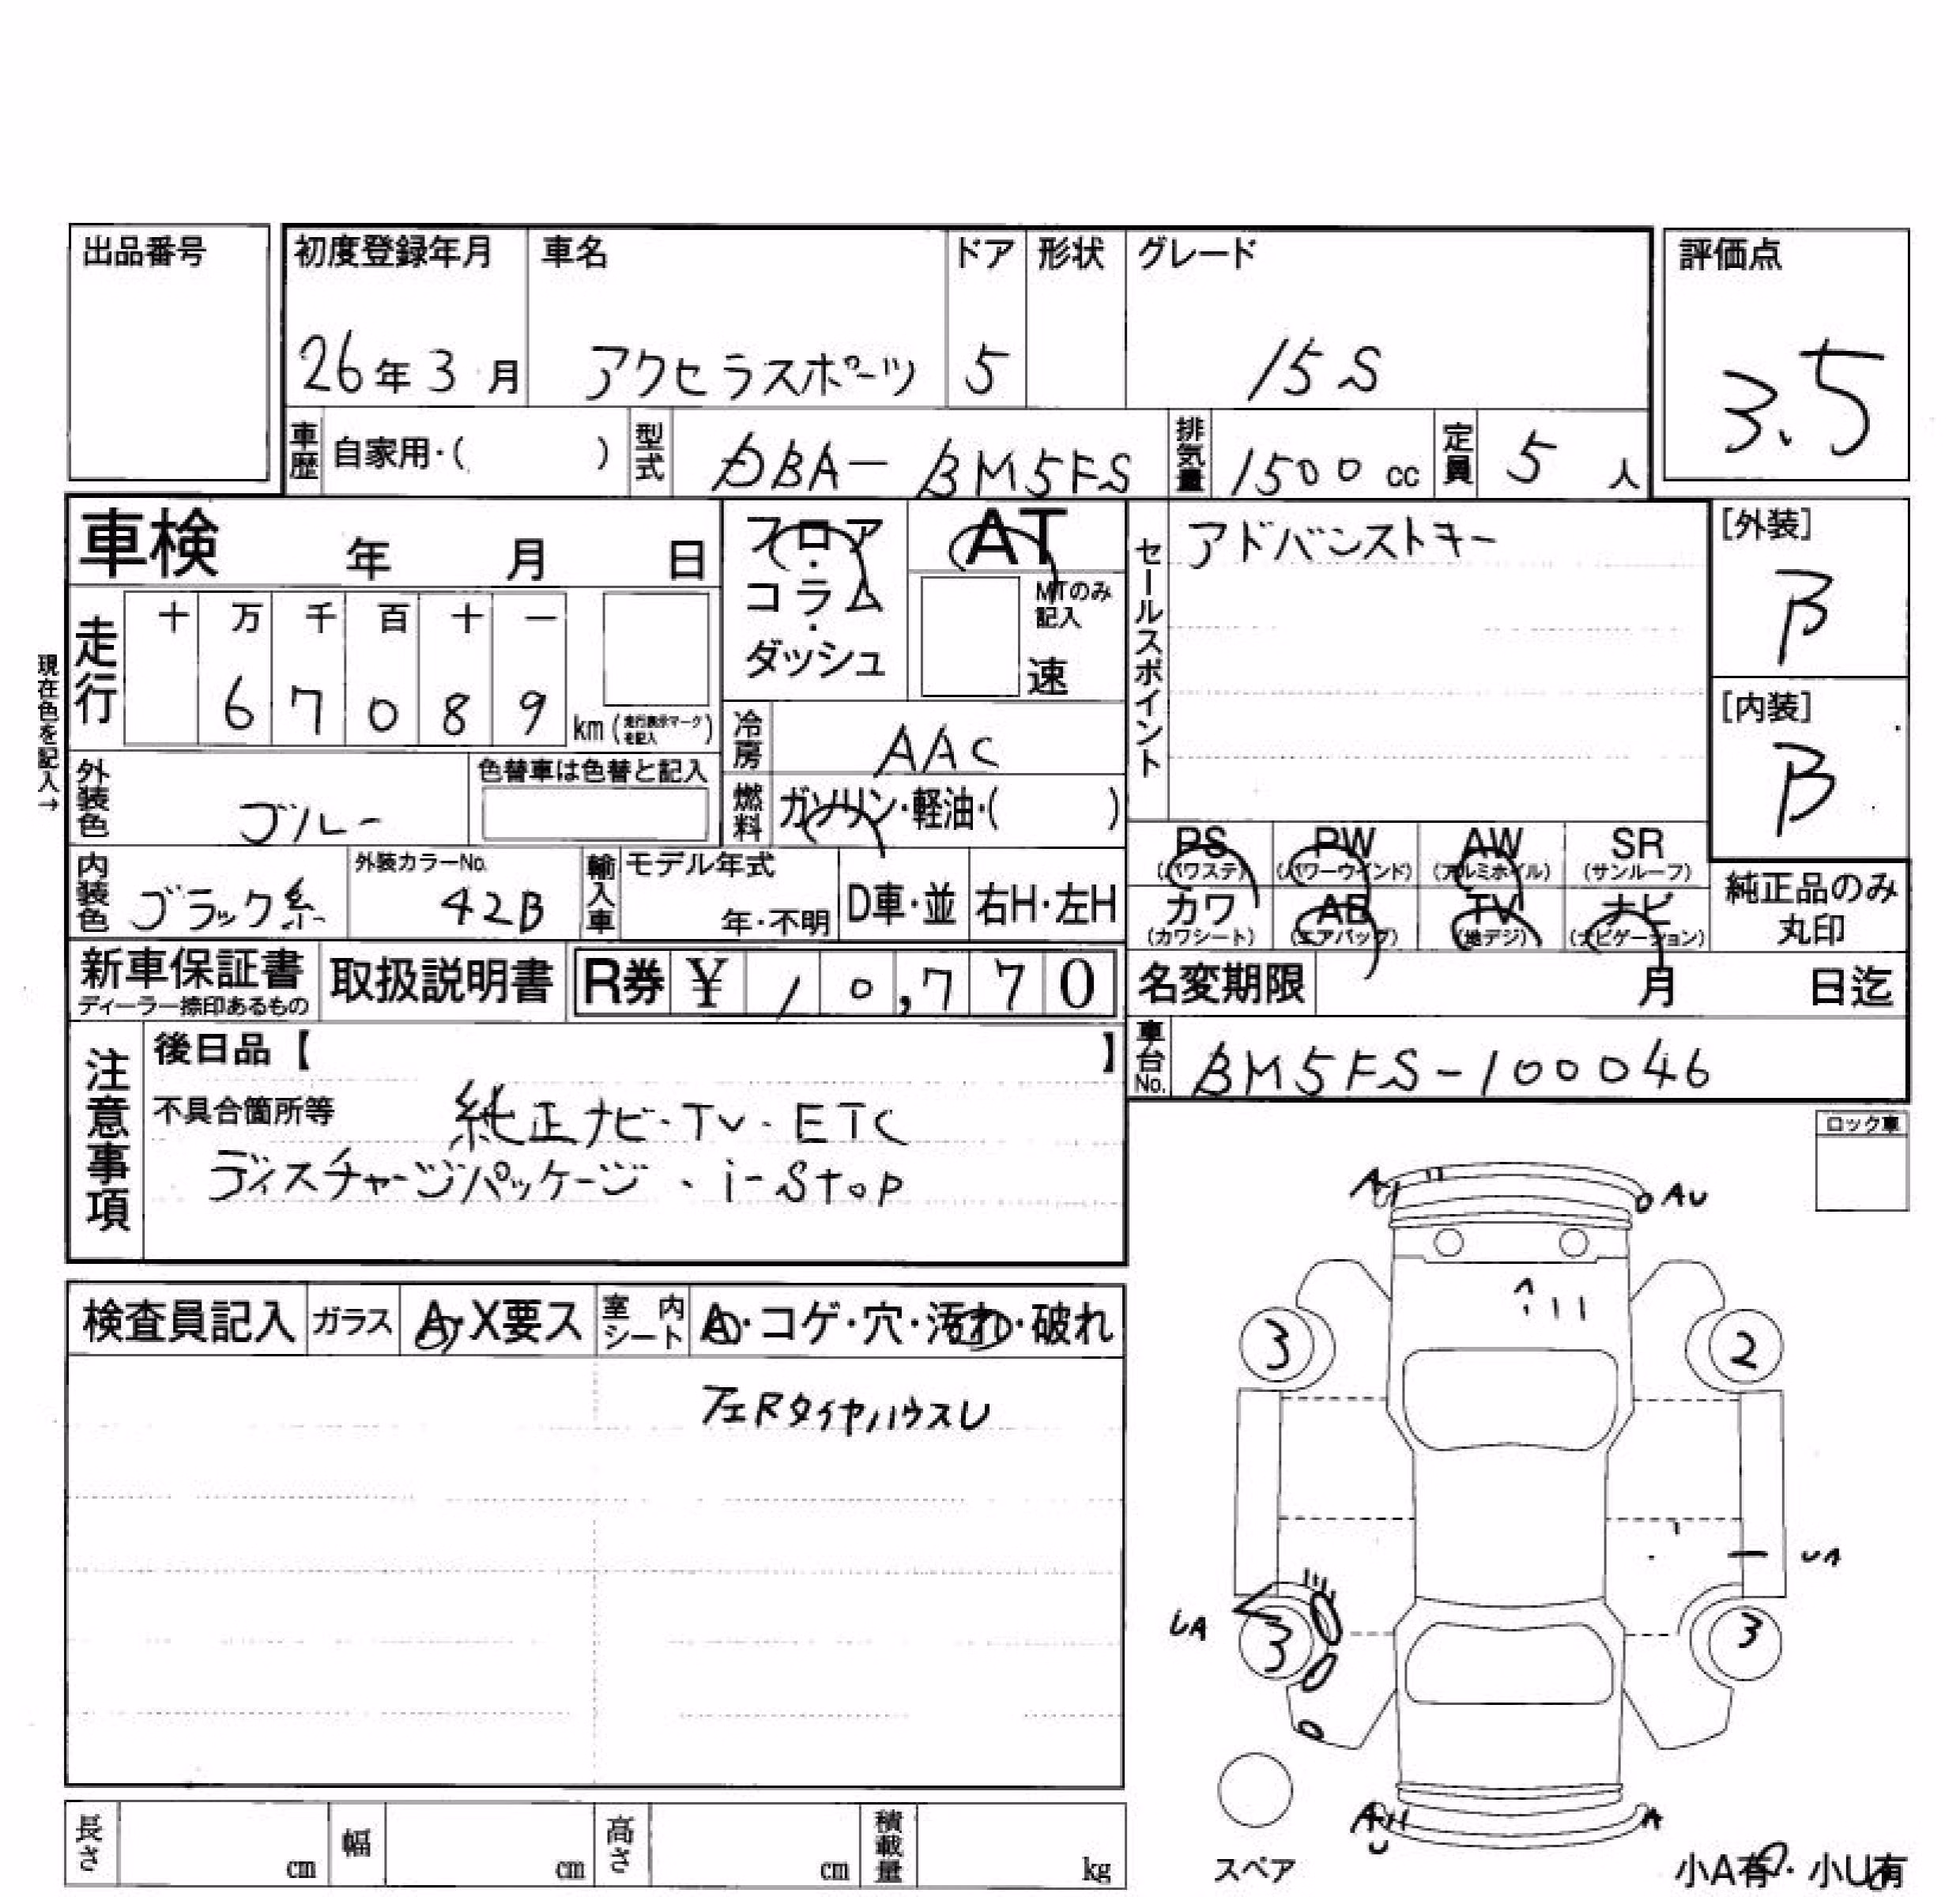 出品番号
初度登録年月 車名 ドア 形状 グレード
評価点
26年3月 アクセラスポーツ 5 15S
3.5
車歴 自家用・( ) 型式 DBA-BM5FS 排気量 1500cc 定員 5人
車検 年 月 日
フロア・コラム・ダッシュ
AT
MTのみ記入
速
セールスポイント アドバンストキー
[外装]
B
[内装]
B
現在色を記入→
走行 十 万 千 百 十 一
6 7 0 8 9 km (走行表示マークを記入)
冷房 AAC
外装色 ブルー
色替車は色替と記入
燃料 ガソリン・軽油・( )
PS (パワステ) PW (パワーウインド) AW (アルミホイル) SR (サンルーフ)
カワ (カワシート) AB (エアバッグ) TV (地デジ) ナビ (ナビゲーション)
純正品のみ丸印
内装色 ブラック系
外装カラーNo. 42B
輸入車 モデル年式 年・不明 D車・並 右H・左H
新車保証書 ディーラー捺印あるもの
取扱説明書
R券 ¥ 10,770
名変期限 月 日迄
車台No. BM5FS-100046
注意事項
後日品【 】
不具合箇所等 純正ナビ・TV・ETC
ディスチャージパッケージ・i-stop
ロック車
A AU
検査員記入 ガラス A・X要ス 室内シート A・コゲ・穴・汚れ・破れ
3 2
UA
UA
3 3
A
スペア
小A有・小U有
長さ cm 幅 cm 高さ cm 積載量 kg